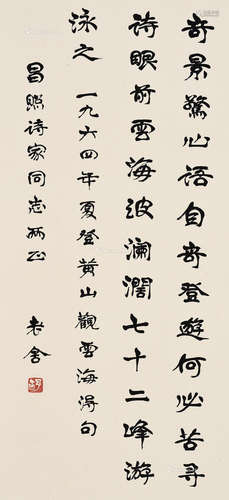 奇景驚心语自奇登遊何必苦寻
诗眼前雲海波澜濶七十二峰游
泳之 一九六四年夏登黄山觀雲海得句
昌煦诗家同志两正
老舍